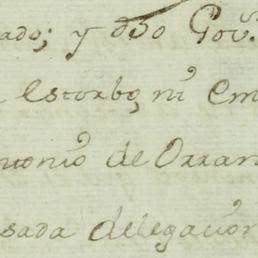 ado; y dho Gov.
estorbo, ni em
monio de Orran
sada delegacion